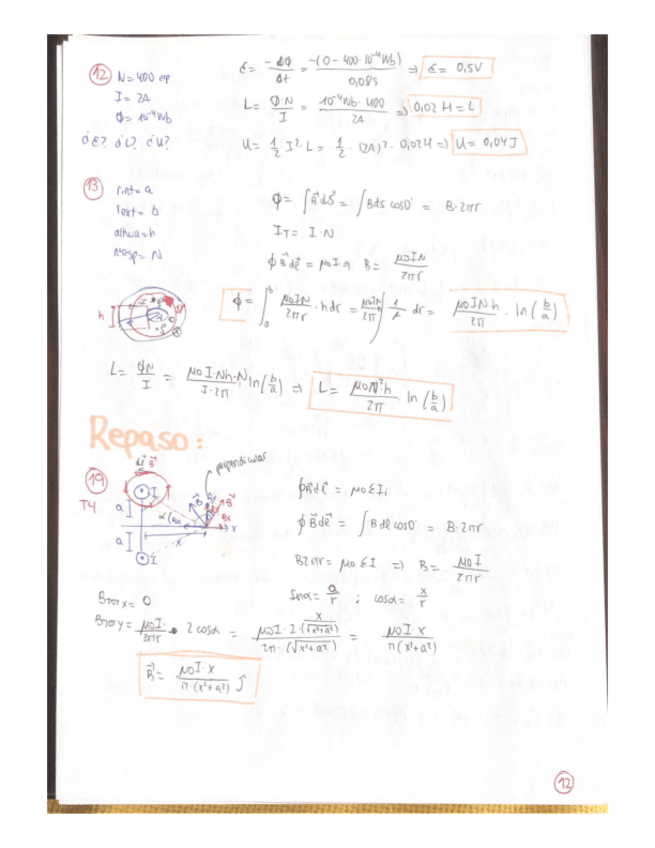 12 N = 400 esp
I = 2A
Φ = 10⁻⁴ Wb
¿ε? ¿L? ¿U?
ε = -ΔΦ/Δt = -(0 - 400·10⁻⁴ Wb)/0,08s => ε = 0,5V
L = Φ·N/I = 10⁻⁴ Wb·400/2A => 0,02 H = L
U = 1/2 I²·L = 1/2 · (2A)² · 0,02H => U = 0,04J
13 rint = a
rext = b
altura = h
nºesp = N
Φ = ∫B⃗ds⃗ = ∫Bds cos0 = B·2πr
I_T = I·N
∮B⃗dℓ⃗ = μ0I => B = μ0IN/2πr
h
Φ = ∫ₐᵇ μ0IN/2πr · hdr = μ0INh/2π ∫ 1/r dr = μ0INh/2π · ln(b/a)
L = ΦN/I = μ0I·Nh·N/I·2π ln(b/a) => L = μ0N²h/2π · ln(b/a)
Repaso:
19
T4
dℓ⃗ B⃗
perpendicular
I
a
α
Bx
By
B⃗
B⃗
Bx
x
a
x
I
∮B⃗dℓ⃗ = μ0ΣIi
∮B⃗dℓ⃗ = ∫Bdℓ cos0 = B·2πr
B2πr = μ0ΣI => B = μ0I/2πr
senα = a/r ; cosα = x/r
BTOTx = 0
BTOTy = μ0I/2πr · 2cosα = μ0I·2·(x/√x²+a²)/2π·(√x²+a²) = μ0I·x/π(x²+a²)
B⃗ = μ0I·x/π·(x²+a²) j⃗
12